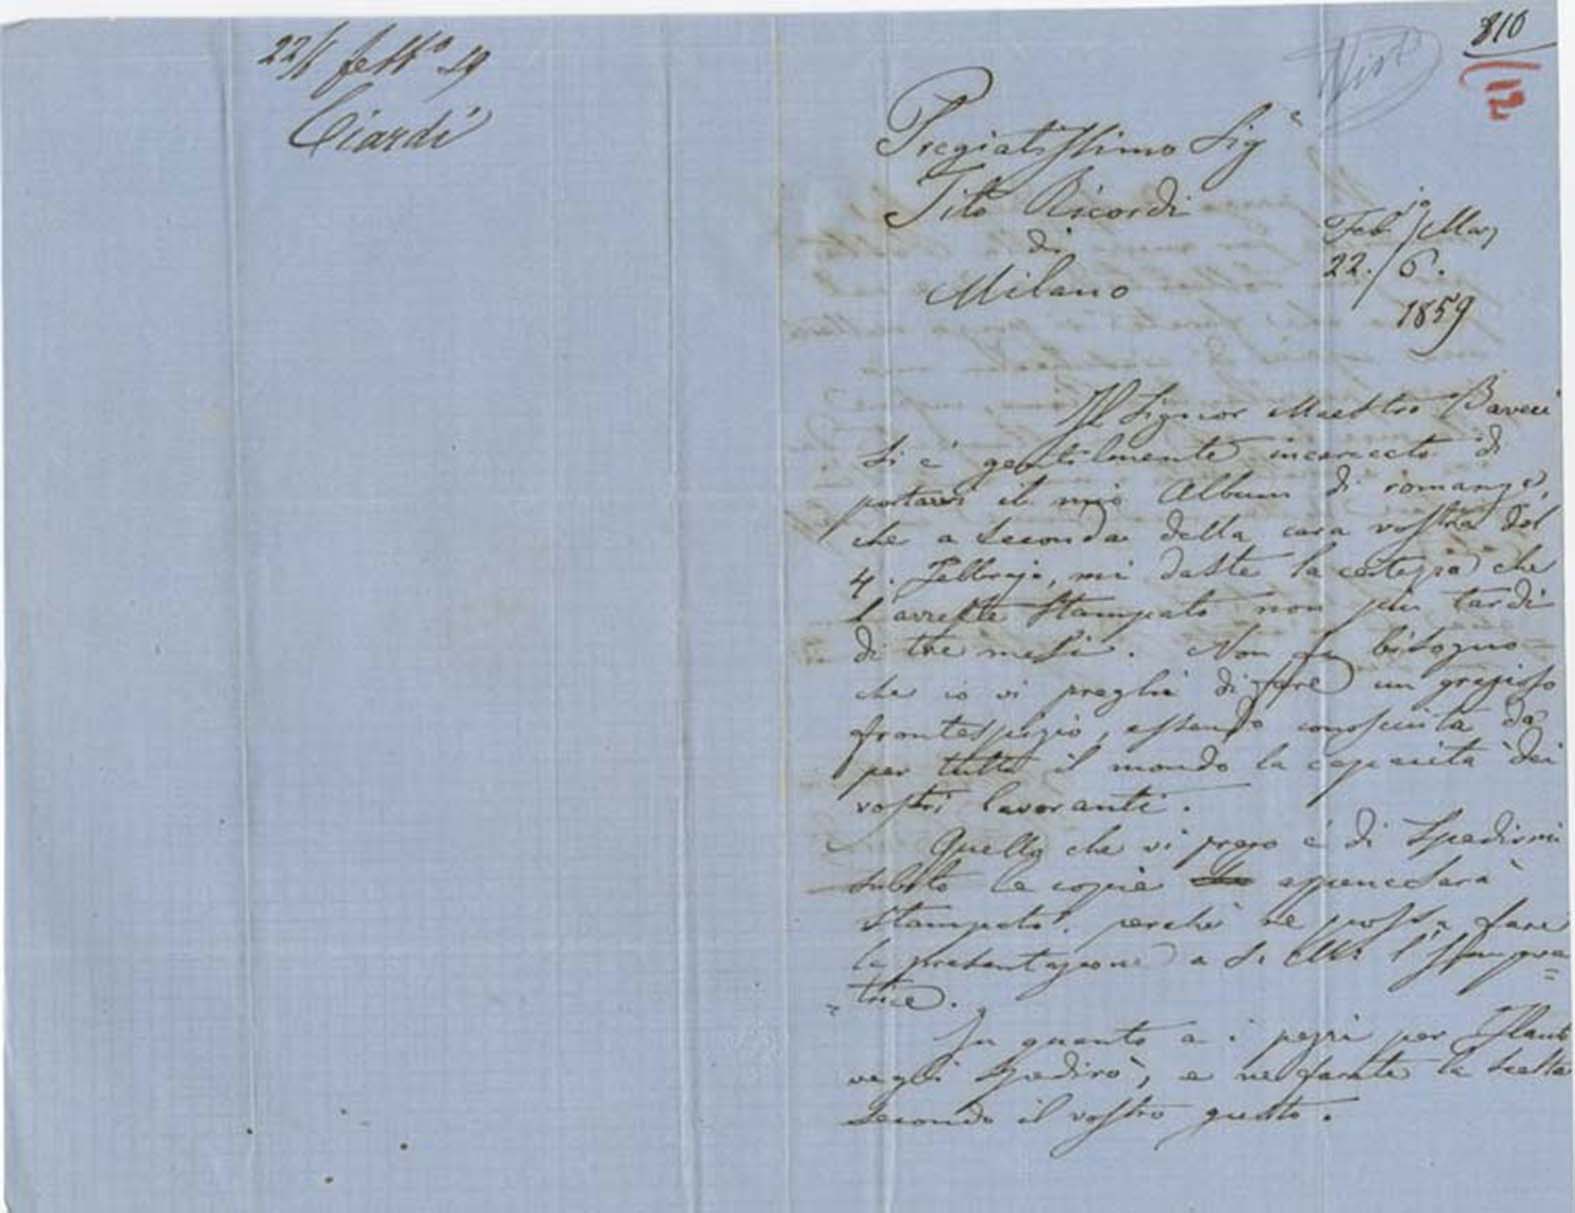 22/ febb.o 59
Ciardi
810
12
Visto
Pregiatissimo Sig.r
Tito Ricordi
di
Milano
Feb.io/Mar,
22./6.
1859
Il Signor Maestro Baveri
si è gentilmente incaricato di
portarvi il mio Album di romanze,
che a seconda della cara vostra del
4. Febbrajo, mi daste la certezza che
l'avreste stampato non più tardi
di tre mesi. Non fa bisogno
che io vi preghi di fare un grazioso
frontespizio, essendo conosciuta da
per tutto il mondo la capacità dei
vostri lavoranti.
Quello che vi prego è di spedirmi
subito le copie appena sarà
stampato, perché ne possa fare
la presentazione a S. M. l'Impera
=trice.
In quanto a i pezzi per Flauto
ve gli spedirò, e ne farete la scelta
secondo il vostro gusto.